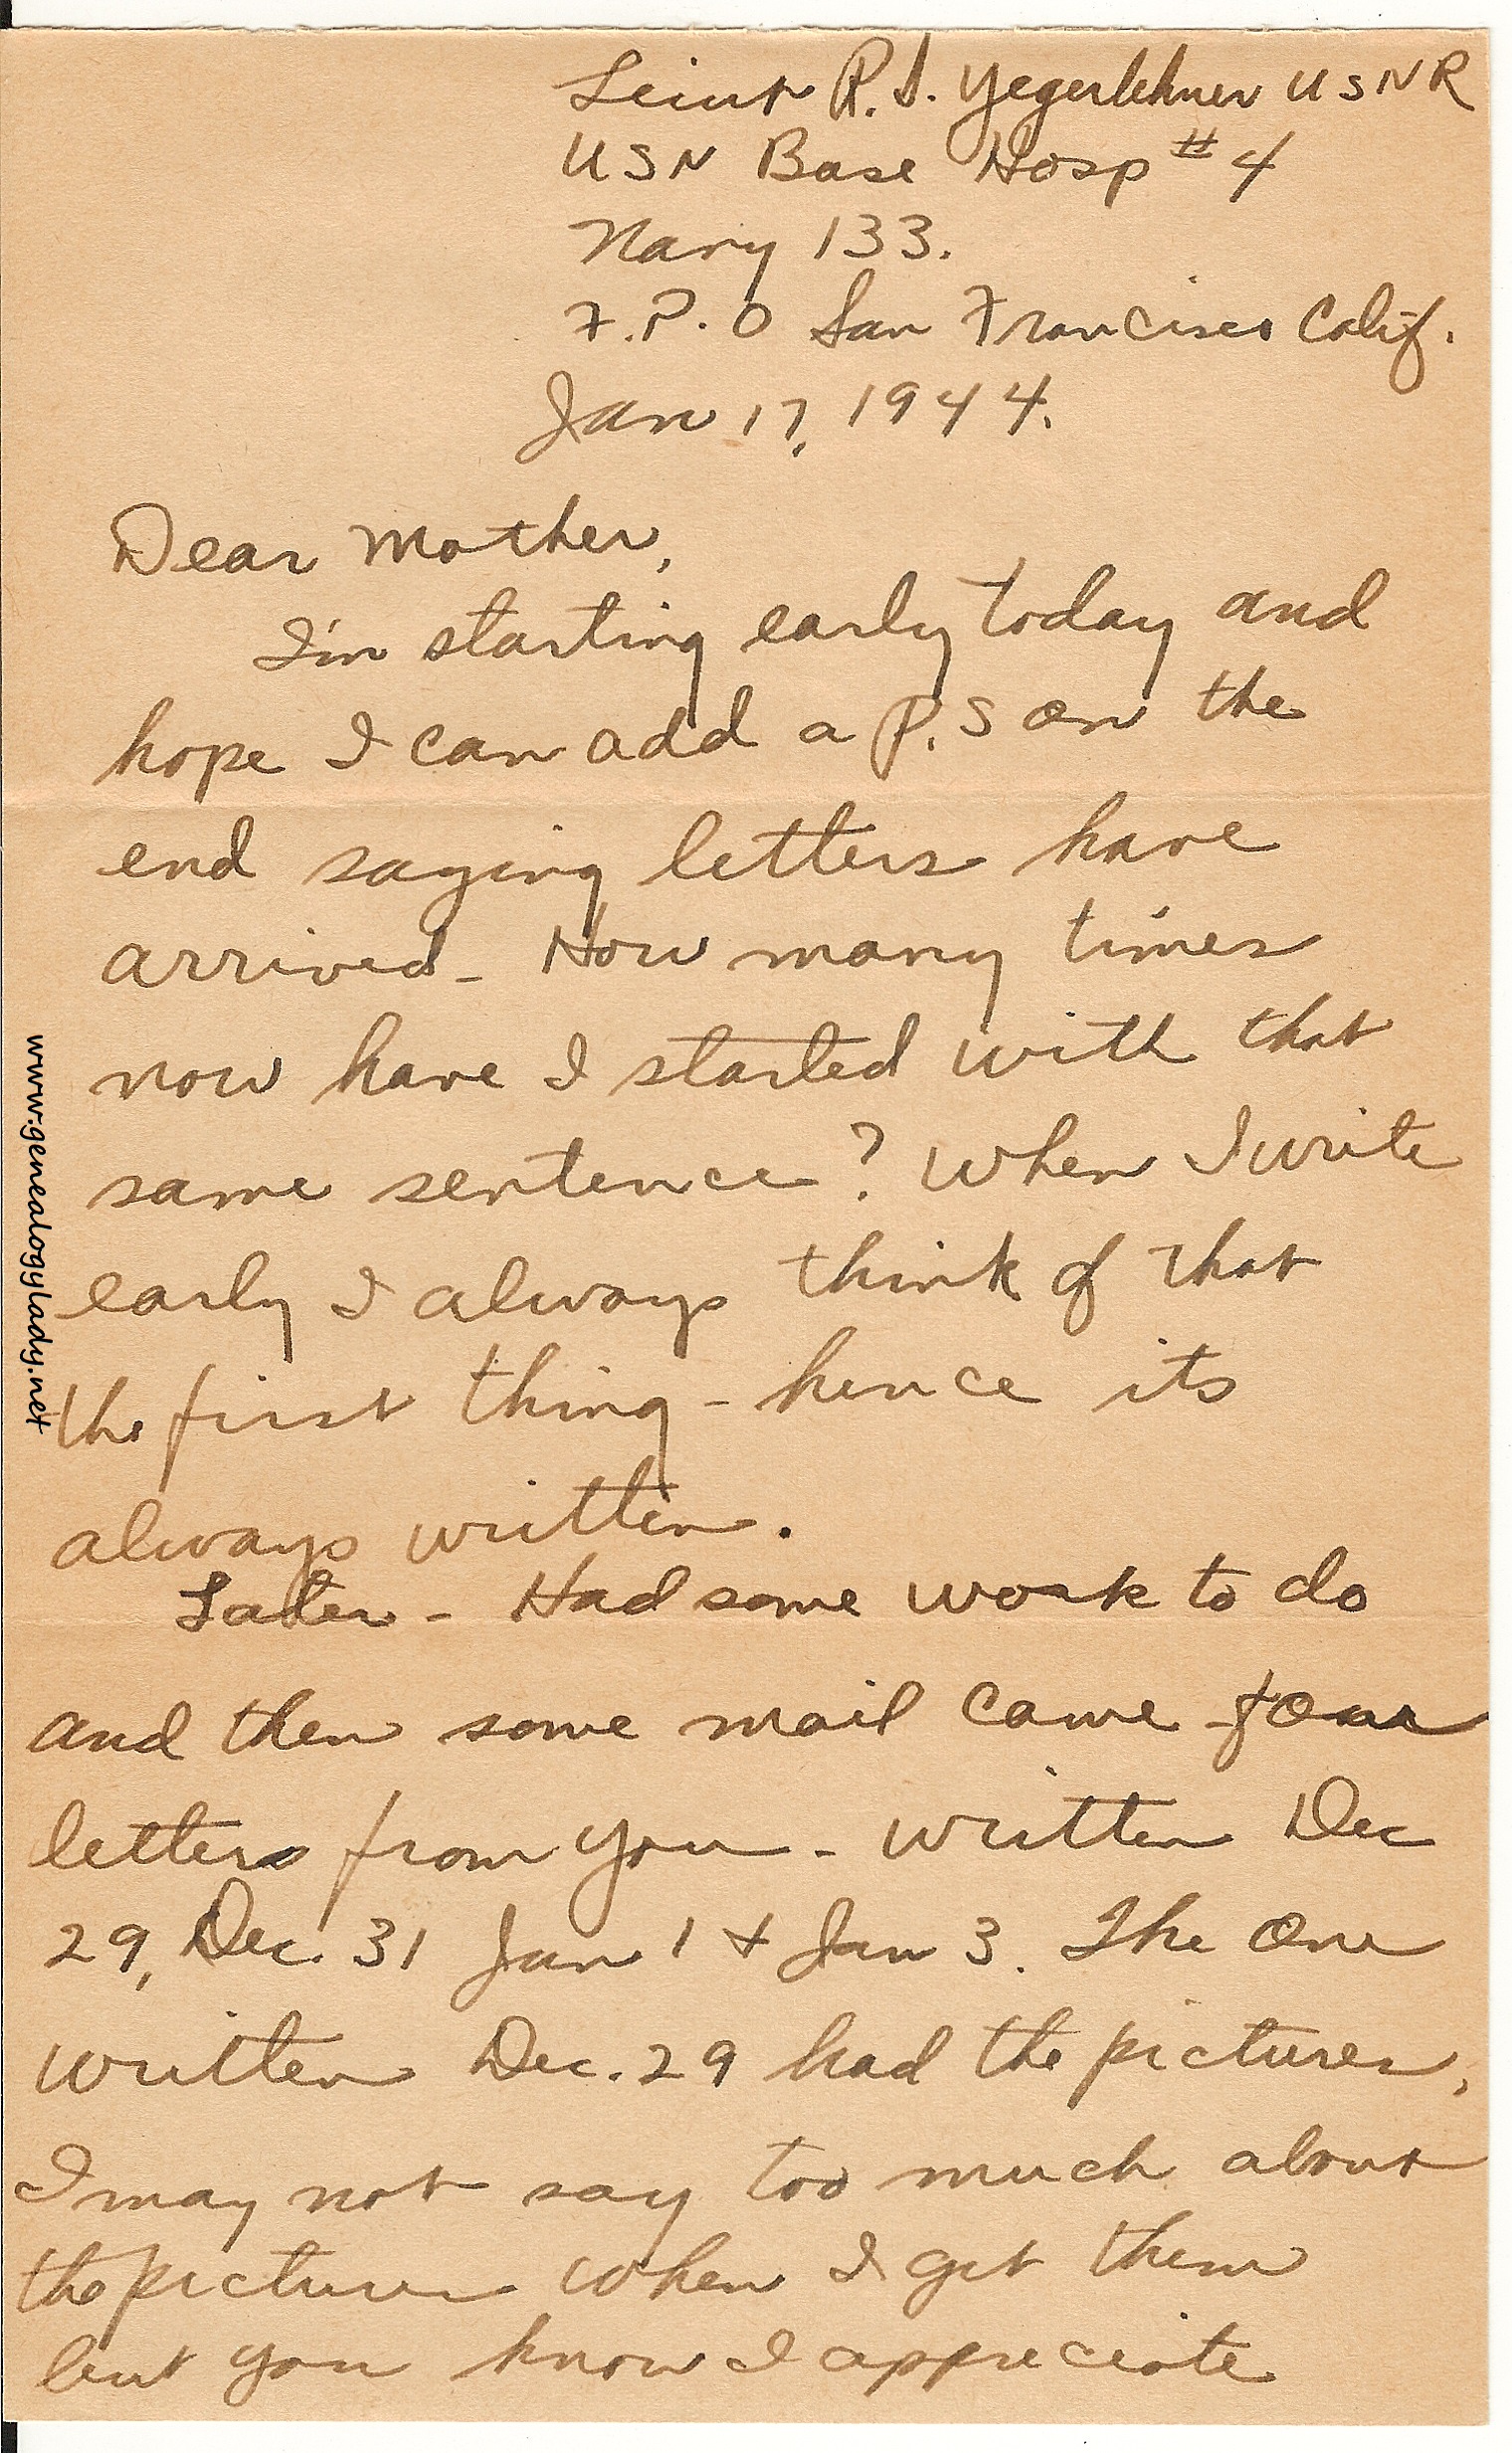 Leiut R. S. Yegerlehner USNR
USN Base Hosp #4
Navy 133.
F.P.O San Francisco Calif.
Jan 17, 1944.
Dear Mother,
I'm starting early today and
hope I can add a P.S on the
end saying letters have
arrived - How many times
now have I started with that
same sentence? When I write
early I always think of that
the first thing - hence its
always written.
Later - Had some work to do
and then some mail came four
letters from you - written Dec
29, Dec. 31 Jan 1 + Jan 3. The one
written Dec. 29 had the pictures,
I may not say too much about
the pictures when I get them
but you know I appreciate
www.genealogylady.net